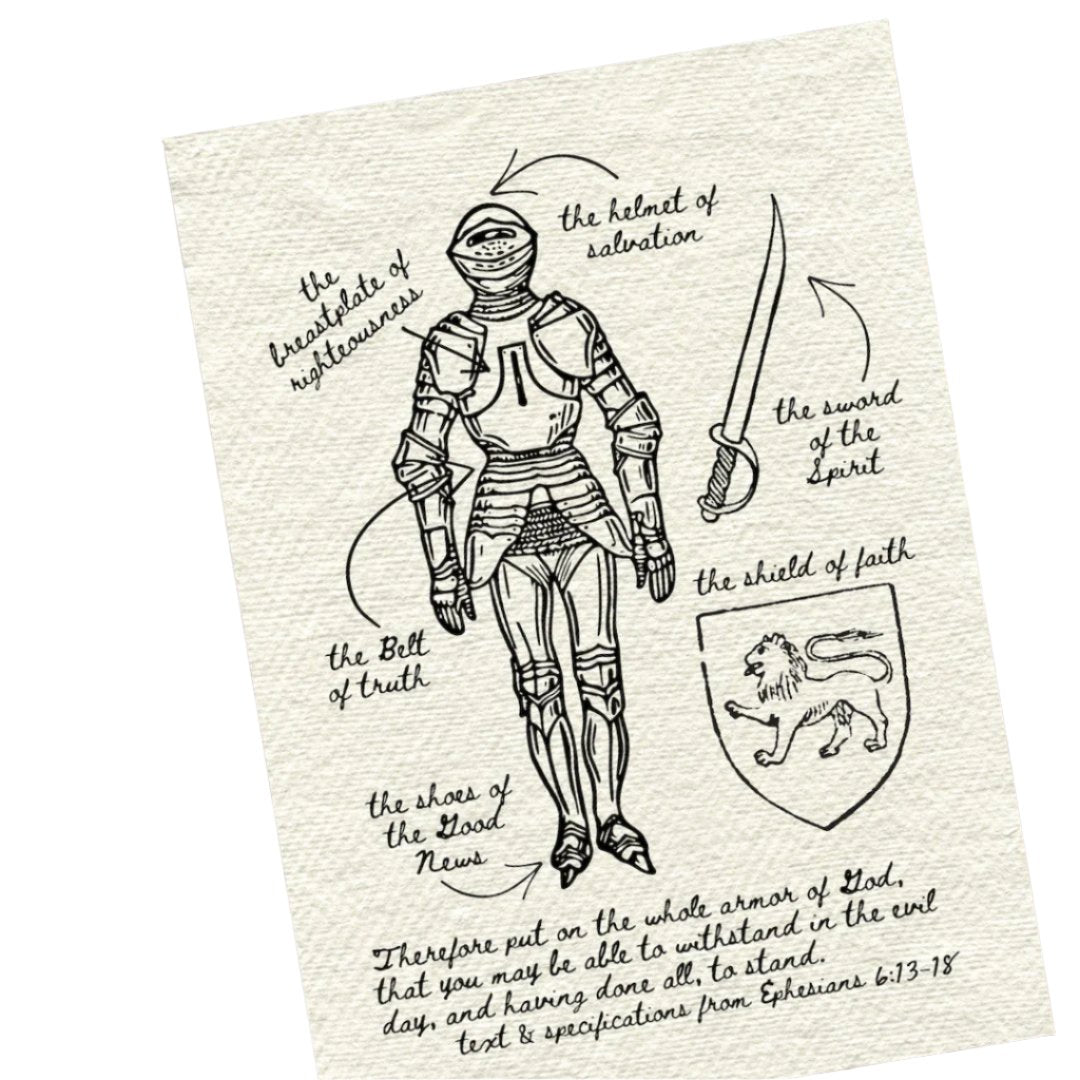 the helmet of
salvation
the
breastplate of
righteousness
the sword
of the
Spirit
the shield of faith
the Belt
of truth
the shoes of
the Good
News
Therefore put on the whole armor of God,
that you may be able to withstand in the evil
day, and having done all, to stand.
text & specifications from Ephesians 6:13-18